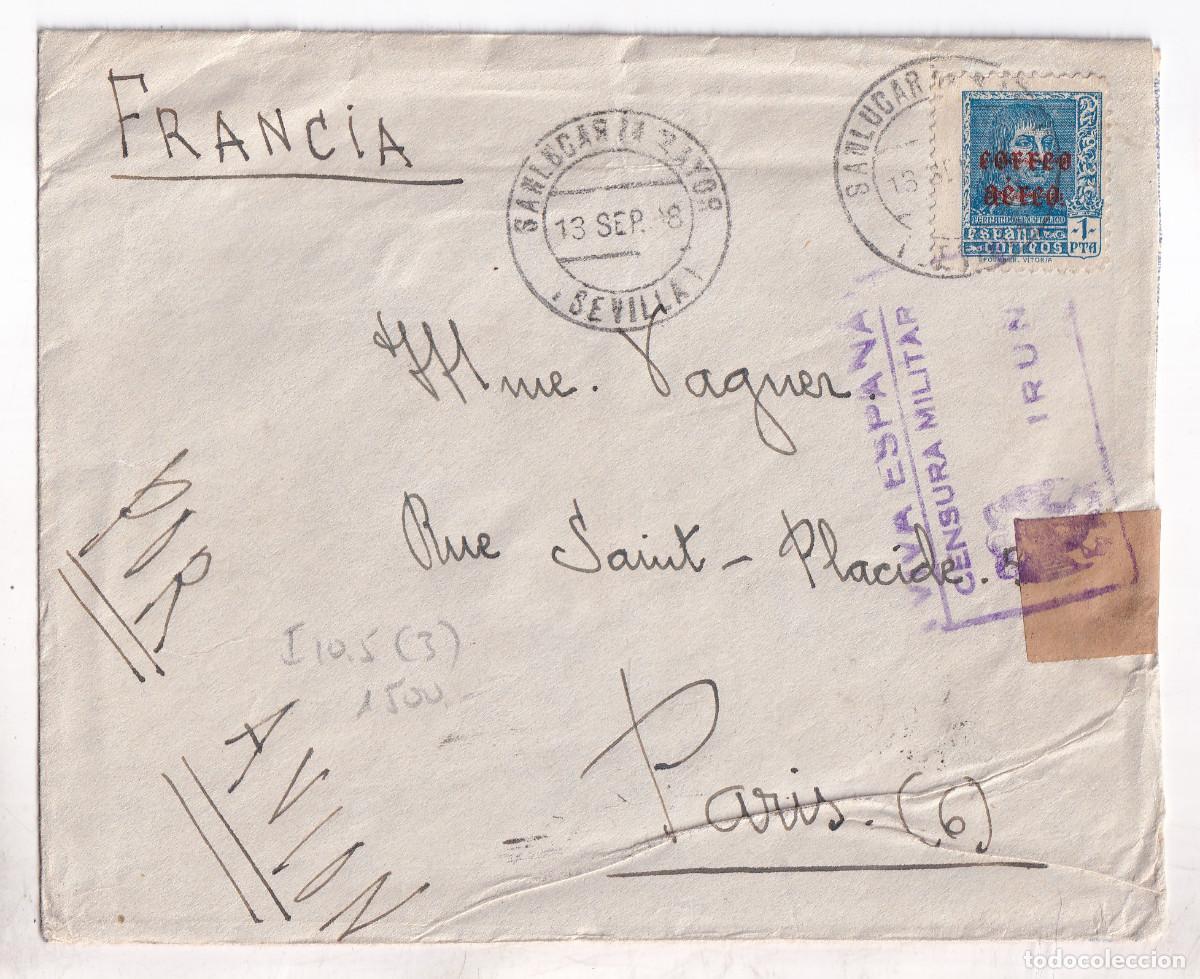 FRANCIA
SANLUCAR LA MAYOR
13 SEP. 38
SEVILLA
SANLUCAR
13
correo
aéreo
ESPAÑA
CORREOS
-1-
PTA
FOURNIER. VITORIA
VIVA ESPAÑA
CENSURA MILITAR
IRUN
Mme. Vagner.
Rue Saint-Placide.
POR
AVION
I 10.5 (3)
1500-
Paris. (6)
todocoleccion